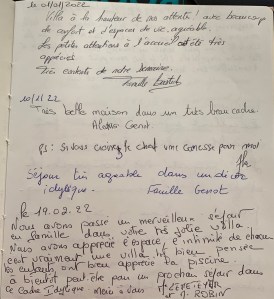 le 01/01/2022
Villa à la hauteur de nos attentes ! avec beaucoup
de confort et d'espaces de vie agréable.
Les petites attentions à l'accueil ont été très
appréciées
Très contents de notre semaine.
Famille
10/1/22
Très belle maison dans un très beau cadre
Genot
PS: Si vous croisez le chat une caresse pour moi
Séjour très agréable dans un décor
idyllique. Famille Genot
le 19.02.22
Nous avons passé un merveilleux séjour
en famille dans votre très jolie villa.
Nous avons apprécié l'espace, l'intimité de chacun
c'est vraiment une villa bien pensée
les enfants ont bien apprécié la piscine.
à bientôt peut être pour un prochain séjour dans
ce cadre Idyllique.
ROBIN